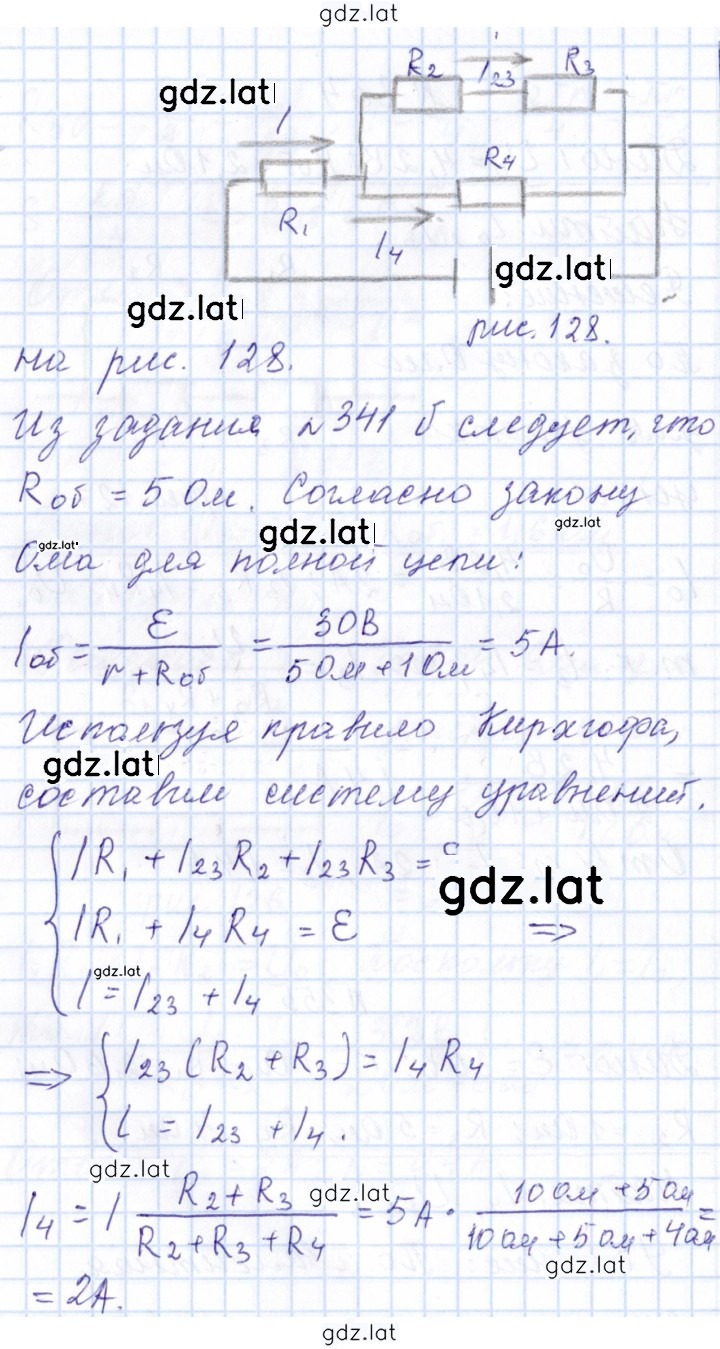 gdz.lat
R₂ I₂₃ R₃
gdz.lat
I
R₄
R₁
I₄
gdz.lat
gdz.lat
рис. 128.
на рис. 128.
Из задания №341 б следует, что
Rоб = 5 Ом. Согласно закону
gdz.lat
gdz.lat
gdz.lat
Ома для полной цепи:
Iоб = ℰ / (r + Rоб) = 30В / (5 Ом + 1 Ом) = 5А.
Используя правило Кирхгофа,
gdz.lat
составим систему уравнений.
IR₁ + I₂₃R₂ + I₂₃R₃ =
gdz.lat
IR₁ + I₄R₄ = ℰ ⇒
gdz.lat
I = I₂₃ + I₄
⇒ { I₂₃(R₂ + R₃) = I₄R₄
I = I₂₃ + I₄.
gdz.lat
gdz.lat
I₄ = I (R₂ + R₃) / (R₂ + R₃ + R₄) = 5А · (10 Ом + 5 Ом) / (10 Ом + 5 Ом + 4 Ом) =
gdz.lat
= 2А.
gdz.lat